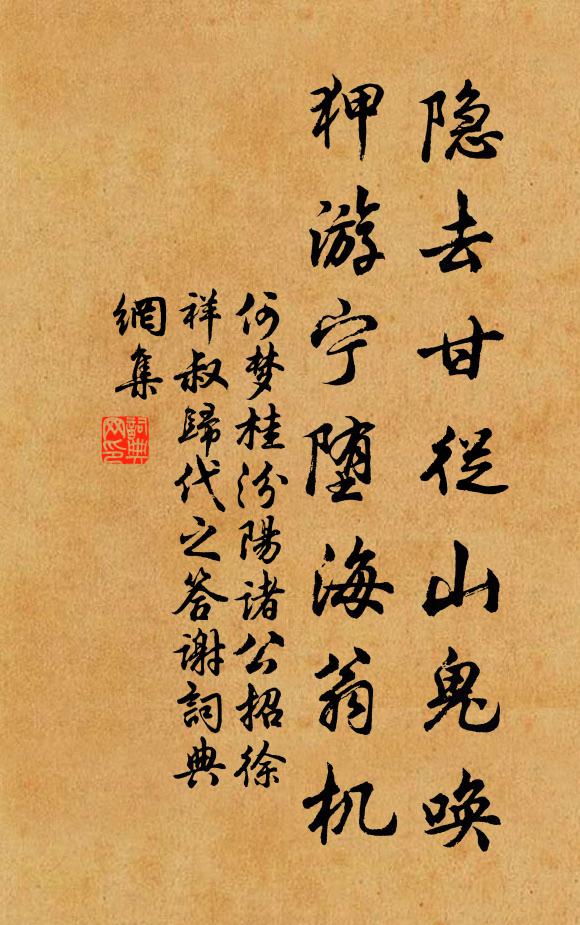 隐去甘從山鬼唤
狎游宁堕海翁机
何梦桂汾陽諸公招徐
祥叔歸代之答谢詞典
網集
詞典
网印